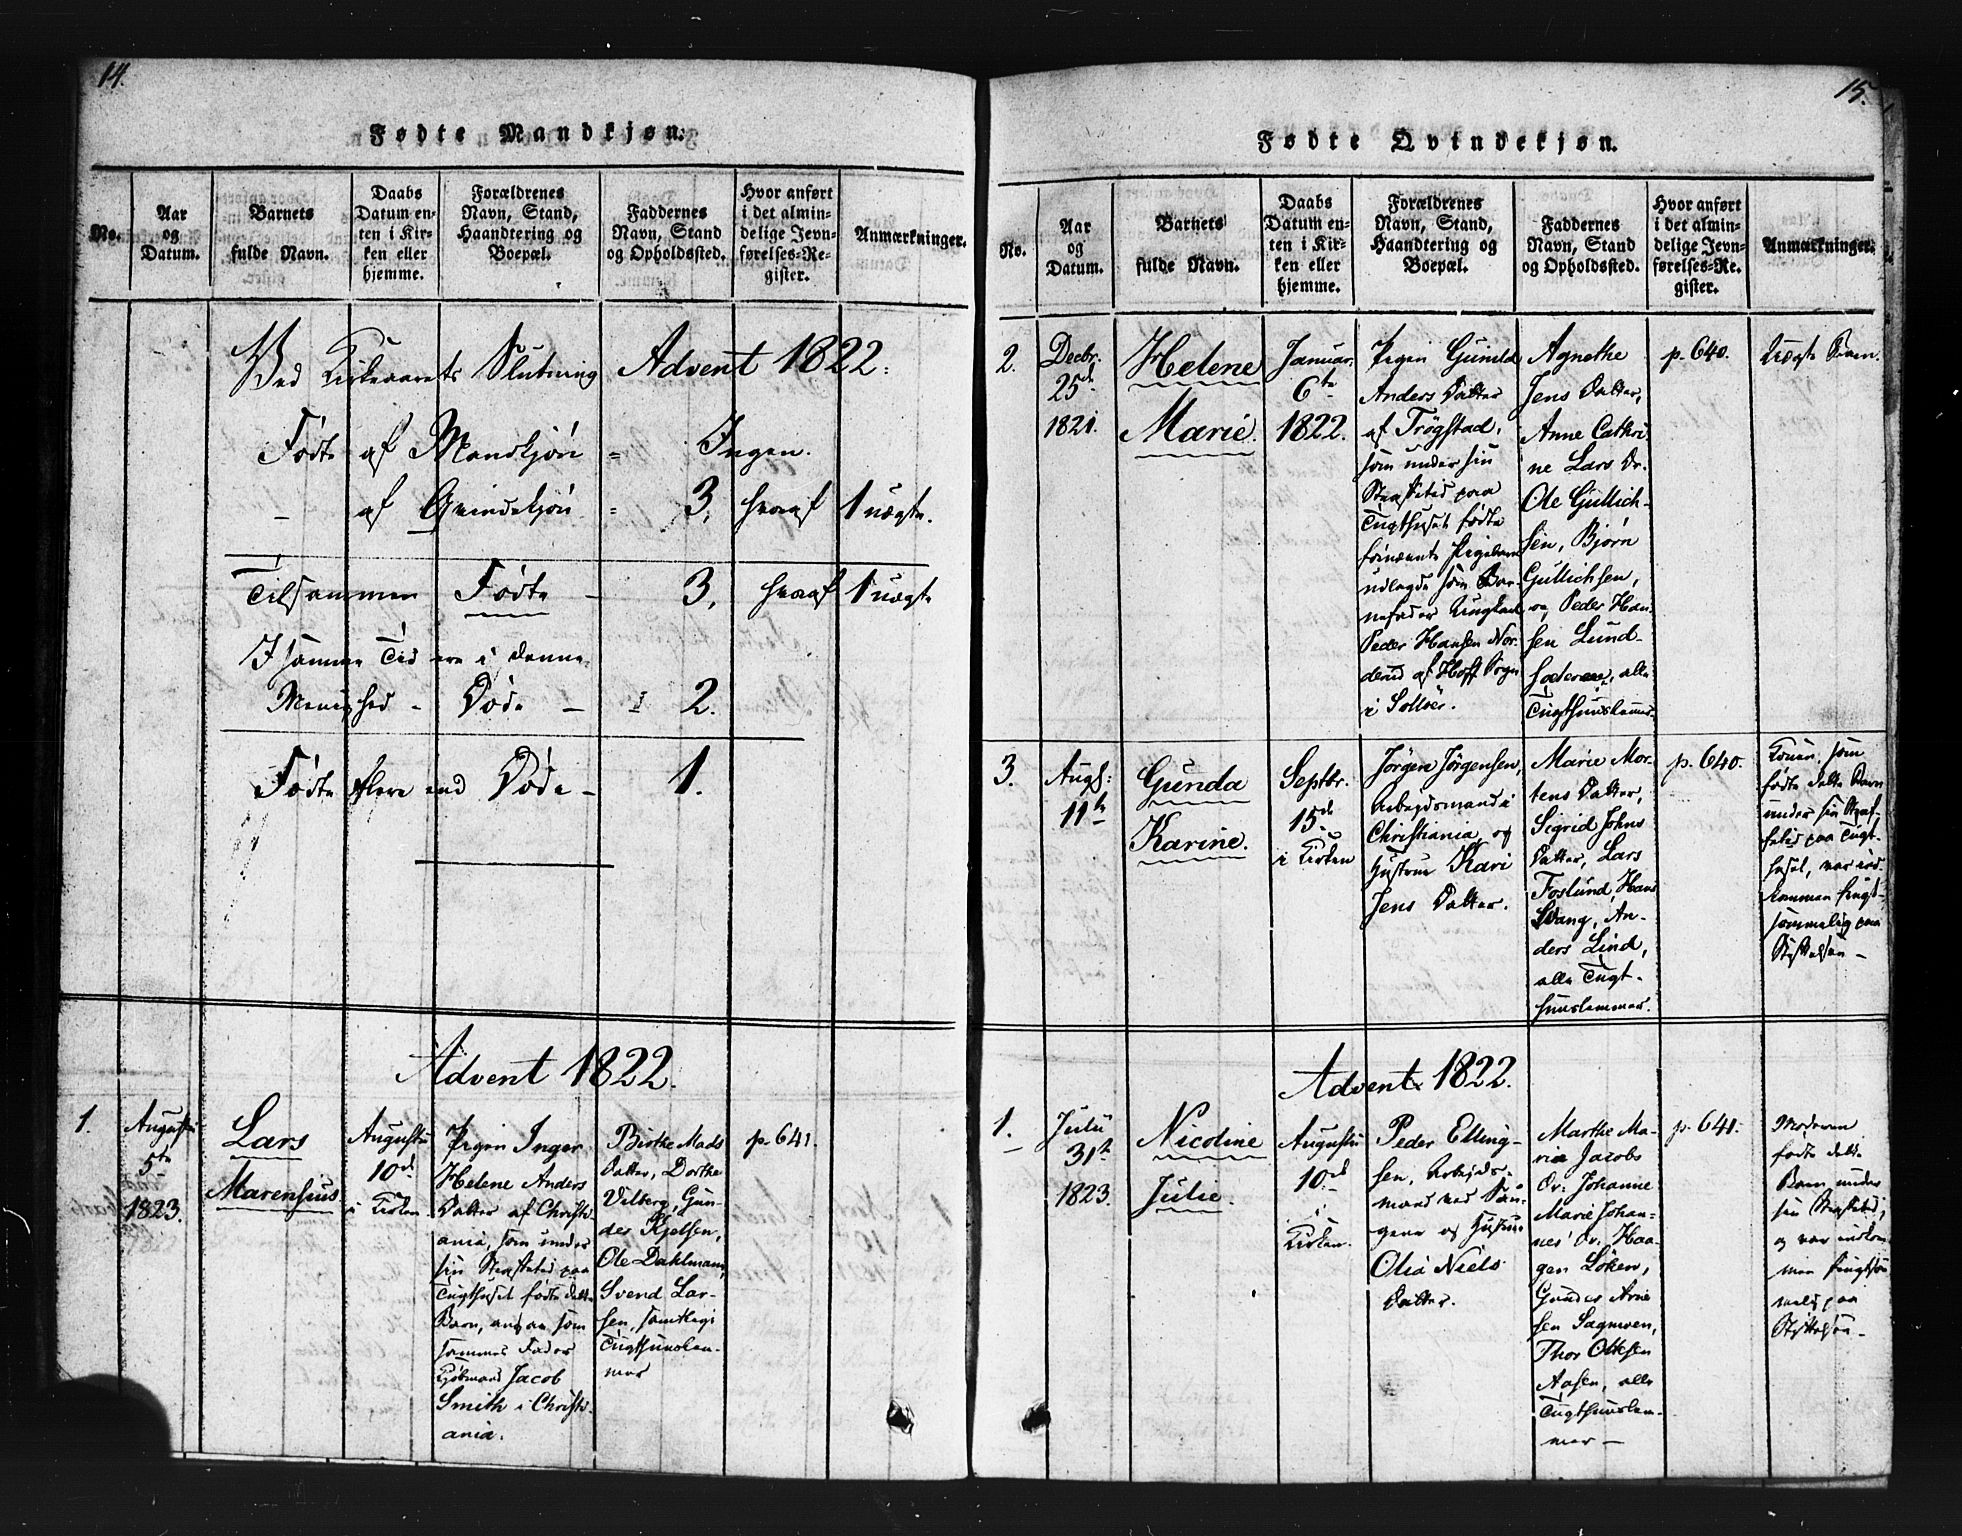 14.
Fødte Mandkjøn.
No.
Aar
og
Datum.
Barnets
fulde Navn.
Daabs
Datum en-
ten i Kir-
ken eller
hjemme.
Forældrenes
Navn, Stand,
Haandtering og
Boepæl.
Faddernes
Navn, Stand
og Opholdssted.
Hvor anført
i det almin-
delige Jevn-
førelses-Re-
gister.
Anmærkninger.
Ved Kirkeaarets Slutning Advent 1822.
Fødte af Mandkjön = Ingen.
- af Qvindekjön = 3, hvoraf 1 uægte.
Tilsammen Födte - 3, hvoraf 1 uægte
I samme Tid ere i denne
Menighed - Döde - 2.
Födte flere end Döde - 1.
Advent 1822.
1.
Augusti
5te
1823.
Lars
Marensius
Augusti
10de
i Kirken
Pigen Inger
Helene Anders
Datter af Christi-
ania, som under
sin Straffetid paa
Tugthuset fødte dette
Barn, angav som
sammes Fader
Kjöbmand Jacob
Smith i Christi-
ania.
Birthe Mads
Datter, Dorthe
Vilberg, Gun-
der Kjelsen,
Ole Dahlmann,
Svend Lar-
sen, samtlige
Tugthuuslem-
mer
p. 641.
15.
Fødte Qvindekjøn.
No.
Aar
og
Datum.
Barnets
fulde Navn.
Daabs
Datum en-
ten i Kir-
ken eller
hjemme.
Forældrenes
Navn, Stand,
Haandtering og
Boepæl.
Faddernes
Navn, Stand
og Opholdssted.
Hvor anført
i det almin-
delige Jevn-
førelses-Re-
gister.
Anmærkninger.
2.
Decbr.
25de
1821.
Helene
Marie.
Januar
6te
1822.
Pigen Gunild
Anders Datter
af Trögstad,
som under sin
Straffetid paa
Tugthuset fødte
Pigebarn
udlagde som Bar-
nefader Ungkarl
Peder Hansen Nor-
derud af Hoff Sogn
i Solöer.
Agnethe
Jens Datter,
Anne Cathri-
ne Lars Dr.
Ole Gullich-
sen, Björn
Gullichsen,
og Peder Han-
sen Lund-
alle
Tugthuuslemmer
p. 640.
Uægte Barn.
3.
Augs:
11te
Gunda
Karine.
Septbr.
15de
i Kirken
Jörgen Jörgensen,
Arbejdsmand i
Christiania, og
Hustrue Kari
Jens Datter.
Marie Mor-
tens Datter,
Sigrid Johns
Datter, Lars
Foslund, Hans
Svang, An-
ders Lind,
alle Tugt-
huuslemmer.
p. 640.
Konen, som
fødte dette Barn
under sin Straf-
fetid paa Tugt-
huset, var ind-
kommen frugt-
sommelig paa
Stiftelsen -
Advent 1822.
1.
Julii
31te
1823.
Nicoline
Julie.
Augusti
10de
i
Kirken.
Peder Elling-
sen, Arbejds-
mand ved Van-
gene og Hustrue
Olia Niels
Datter.
Marthe Ma-
ria Jacobs
Dr: Johanne
Marie Johan-
nes' Dr. Haa-
gen Löken,
Gunder Arne
sen Sagmoen,
Thor Olksen
Aasen, alle
Tugthuuslem-
mer -
p. 641.
Moderen
fødte dette
Barn under
sin Straffetid,
og var indkom-
men frugtsom-
melig paa
Stiftelsen -